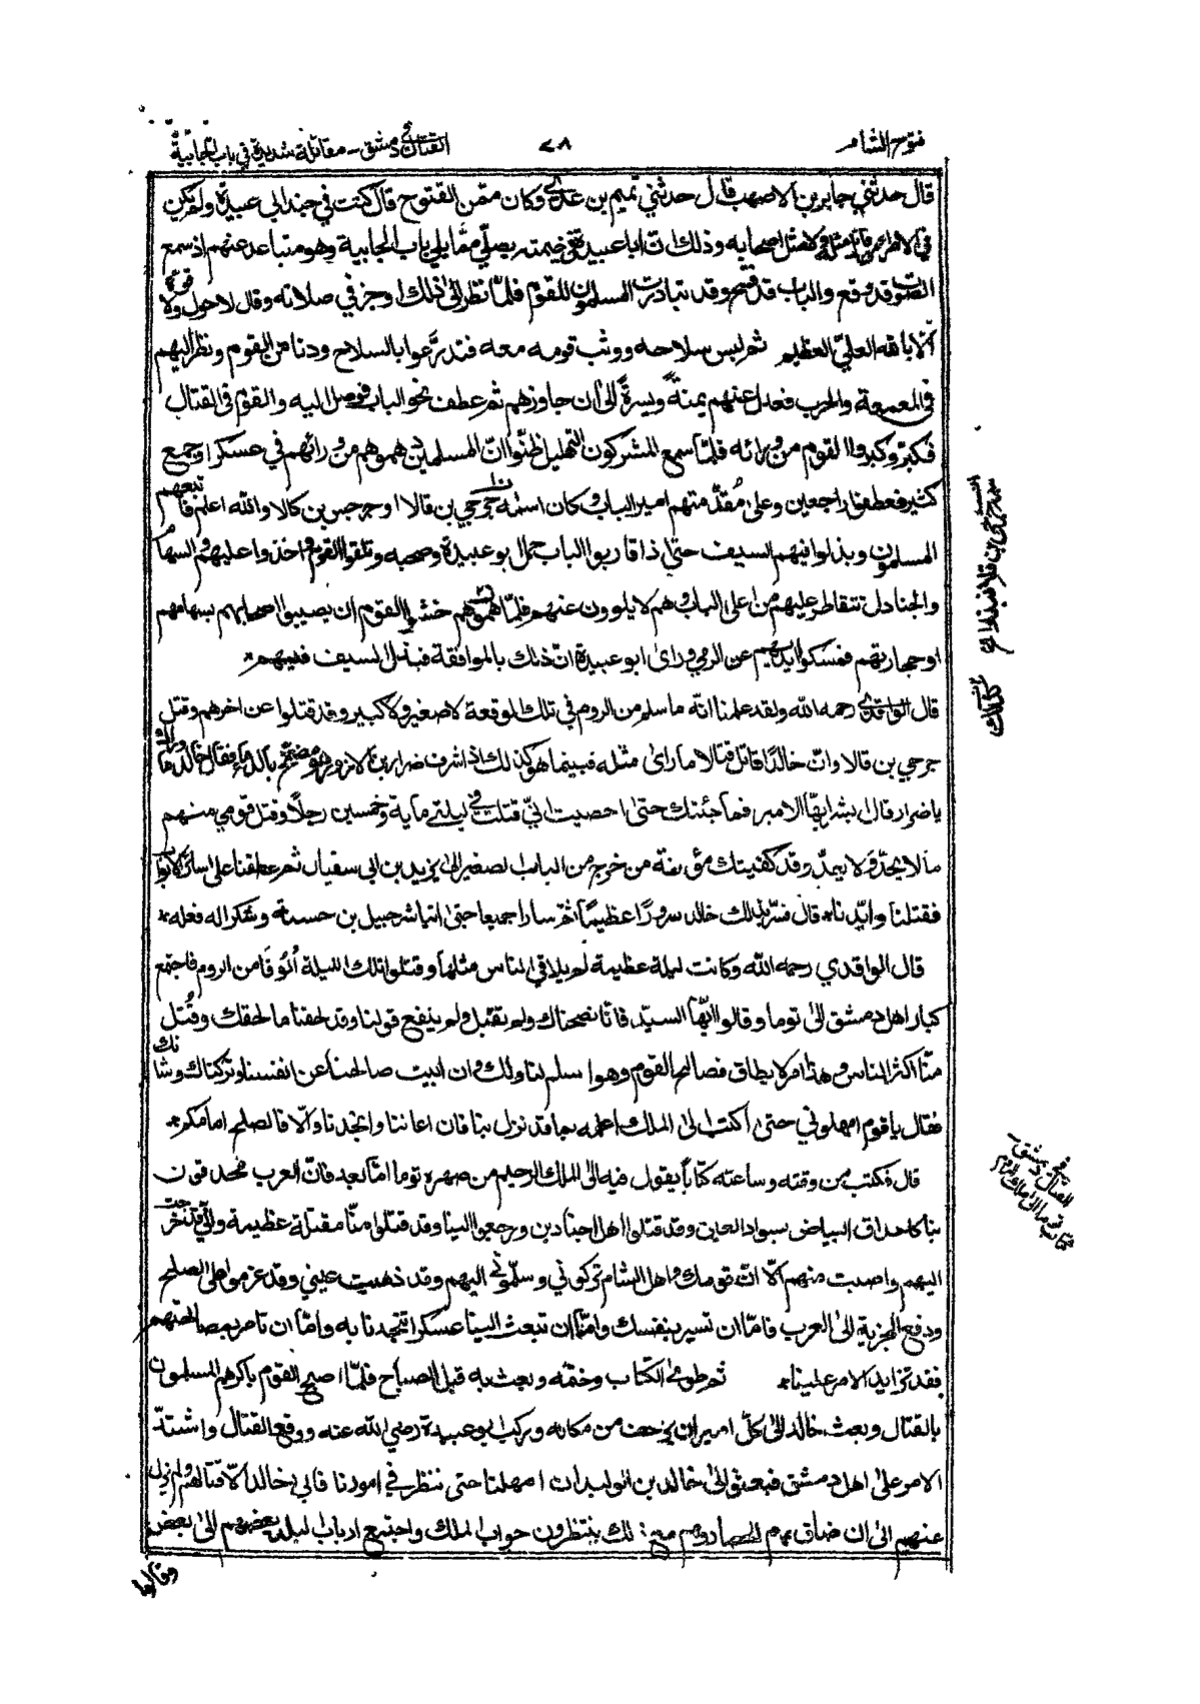 فتوح الشام
٧٨
القتال في دمشق - مقاتلة شديدة في باب الجابية
قال حدثني جابر بن الاصهب قال حدثني تميم بن عدي وكان ممّن الفتوح قال كنت في جند ابي عبيدة ولم تكن
لاصحابه وذلك انّ ابا عبيدة في خيمته يصلّي ممّا يلي باب الجابية وهو متباعد عنهم اذ سمع
الصوت قد وقع والباب قد فتح وقد تبادرت المسلمون للقوم فلمّا نظر الى ذلك اوجز في صلاته وقال لا حول ولا قوّة
الّا بالله العليّ العظيم ثم لبس سلاحه ووثب قومه معه فتدرّعوا بالسلاح ودنا من القوم ونظر اليهم
في المعمعة والحرب فعدل عنهم يمنةً ويسرةً الى ان جاوزهم ثم عطف نحو الباب فوصل اليه والقوم في القتال
فكبّر وكبروا القوم من ورائه فلمّا سمع المشركون التهليل ظنّوا انّ المسلمين دهموهم من ورائهم في عسكر وجمع
كثير فعطفوا راجعين وعلى مُقدّمتهم امير الباب وكان اسمه جرجي بن قالا او جرجس بن كالا والله اعلم فاتبعهم
المسلمون وبذلوا فيهم السيف حتى اذا قاربوا الباب حمل ابو عبيدة وصحبه وتلقوا القوم واخذوا عليهم والسهام
والجنادل تتقاطر عليهم من اعلى الباب وهم لا يلوون عنهم فلمّا خشوا القوم ان يصيبوا اصحابهم بسهامهم
او حجارتهم فمسكوا ايديهم عن الرمي ورأى ابو عبيدة انّ ذلك بالموافقة فبذل السيف فيهم*
قال الواقدي رحمه الله ولقد علمنا انّه ما سلم من الروم في تلك الوقعة لا صغير ولا كبير وقد قتلوا عن اخرهم وقتل
جرجي بن قالا وانّ خالدًا قاتل قتالا ما رأى مثله فبينما هو كذلك اذ اشرف ضرار بن الازور وهو مضمّخ بالدماء فقال خالد ما وراك
يا ضرار قال ابشر ايّها الامير فما جئتك حتى احصيت انّي قتلت في ليلتي ماية وخمسين رجلاً وقتل قومي منهم
ما لا يحدّ ولا يعدّ وقد كفيتك مؤونة من خرج من الباب الصغير الى يزيد بن ابي سفيان ثم عطفنا على سائر الابواب
فقتلنا وابدنا* قال فسرّ بذلك خالد سرورًا عظيمًا ثمّ سارا جميعا حتى اتيا شرجبيل بن حسنة وشكرا له فعله*
قال الواقدي رحمه الله وكانت ليلة عظيمة لم يلاقي الناس مثلها وقتلوا تلك الليلة اُلوفًا من الروم فاجتمع
كبار اهل دمشق الى توما وقالوا ايّها السيّد فانّا نصحناك ولم تقبل ولم ينفع قولنا وقد لحقنا ما لحقك وقُتل
منّا اكثر الناس وهذا امر لا يطاق فصالح القوم وهوا سلم لنا ولك وان ابيت صالحنا عن انفسنا وتركناك وشانك
فقال يا قوم امهلوني حتى اكتب الى الملك واعلمه بما قد نزل بنا فان اعاننا وانجدنا والّا فالصلح امامكم*
قال فكتب من وقته وساعته كتابًا يقول فيه الى الملك الرحيم من صهره توما امّا بعد فانّ العرب محدقون
بنا كاحداق البياض بسواد العين وقد قتلوا اهل اجنادين ورجعوا الينا وقد قتلوا منّا مقتلة عظيمة وانّي قد خرجت
اليهم واصبت منهم الّا انّ قومك واهل الشام تركوني وسلّموني اليهم وقد ذهبت عيني وقد عزموا على الصلح
ودفع الجزية الى العرب فامّا ان تسير بنفسك وامّا ان تبعث الينا عسكرا تنجدنا به وامّا ان تامر بمصالحتهم
فقد تزايد الامر علينا* ثم طوى الكتاب وختمه وبعث به قبل الصباح فلمّا اصبح القوم باكرهم المسلمون
بالقتال وبعث خالد الى كلّ امير ان يزحف من مكانه وركب ابو عبيدة رضي الله عنه ووقع القتال واشتدّ
الامر على اهل دمشق فبعثوا الى خالد بن الوليد ان امهلنا حتى ننظر في امورنا فابى خالد الّا قتالهم ولم يزل
عنهم الى ان ضاق بهم الحصار وهم مع ذلك ينتظرون جواب الملك واجتمع ارباب البلد بعضهم الى بعض
وقالوا